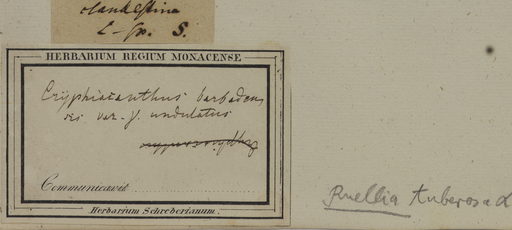 clandestina
L. Sp. S.
HERBARIUM REGIUM MONACENSE
Cryphiacanthus barbaden
sis var. γ. undulatus
Communicavit
Herbarium Schreberianum.
Ruellia tuberosa L